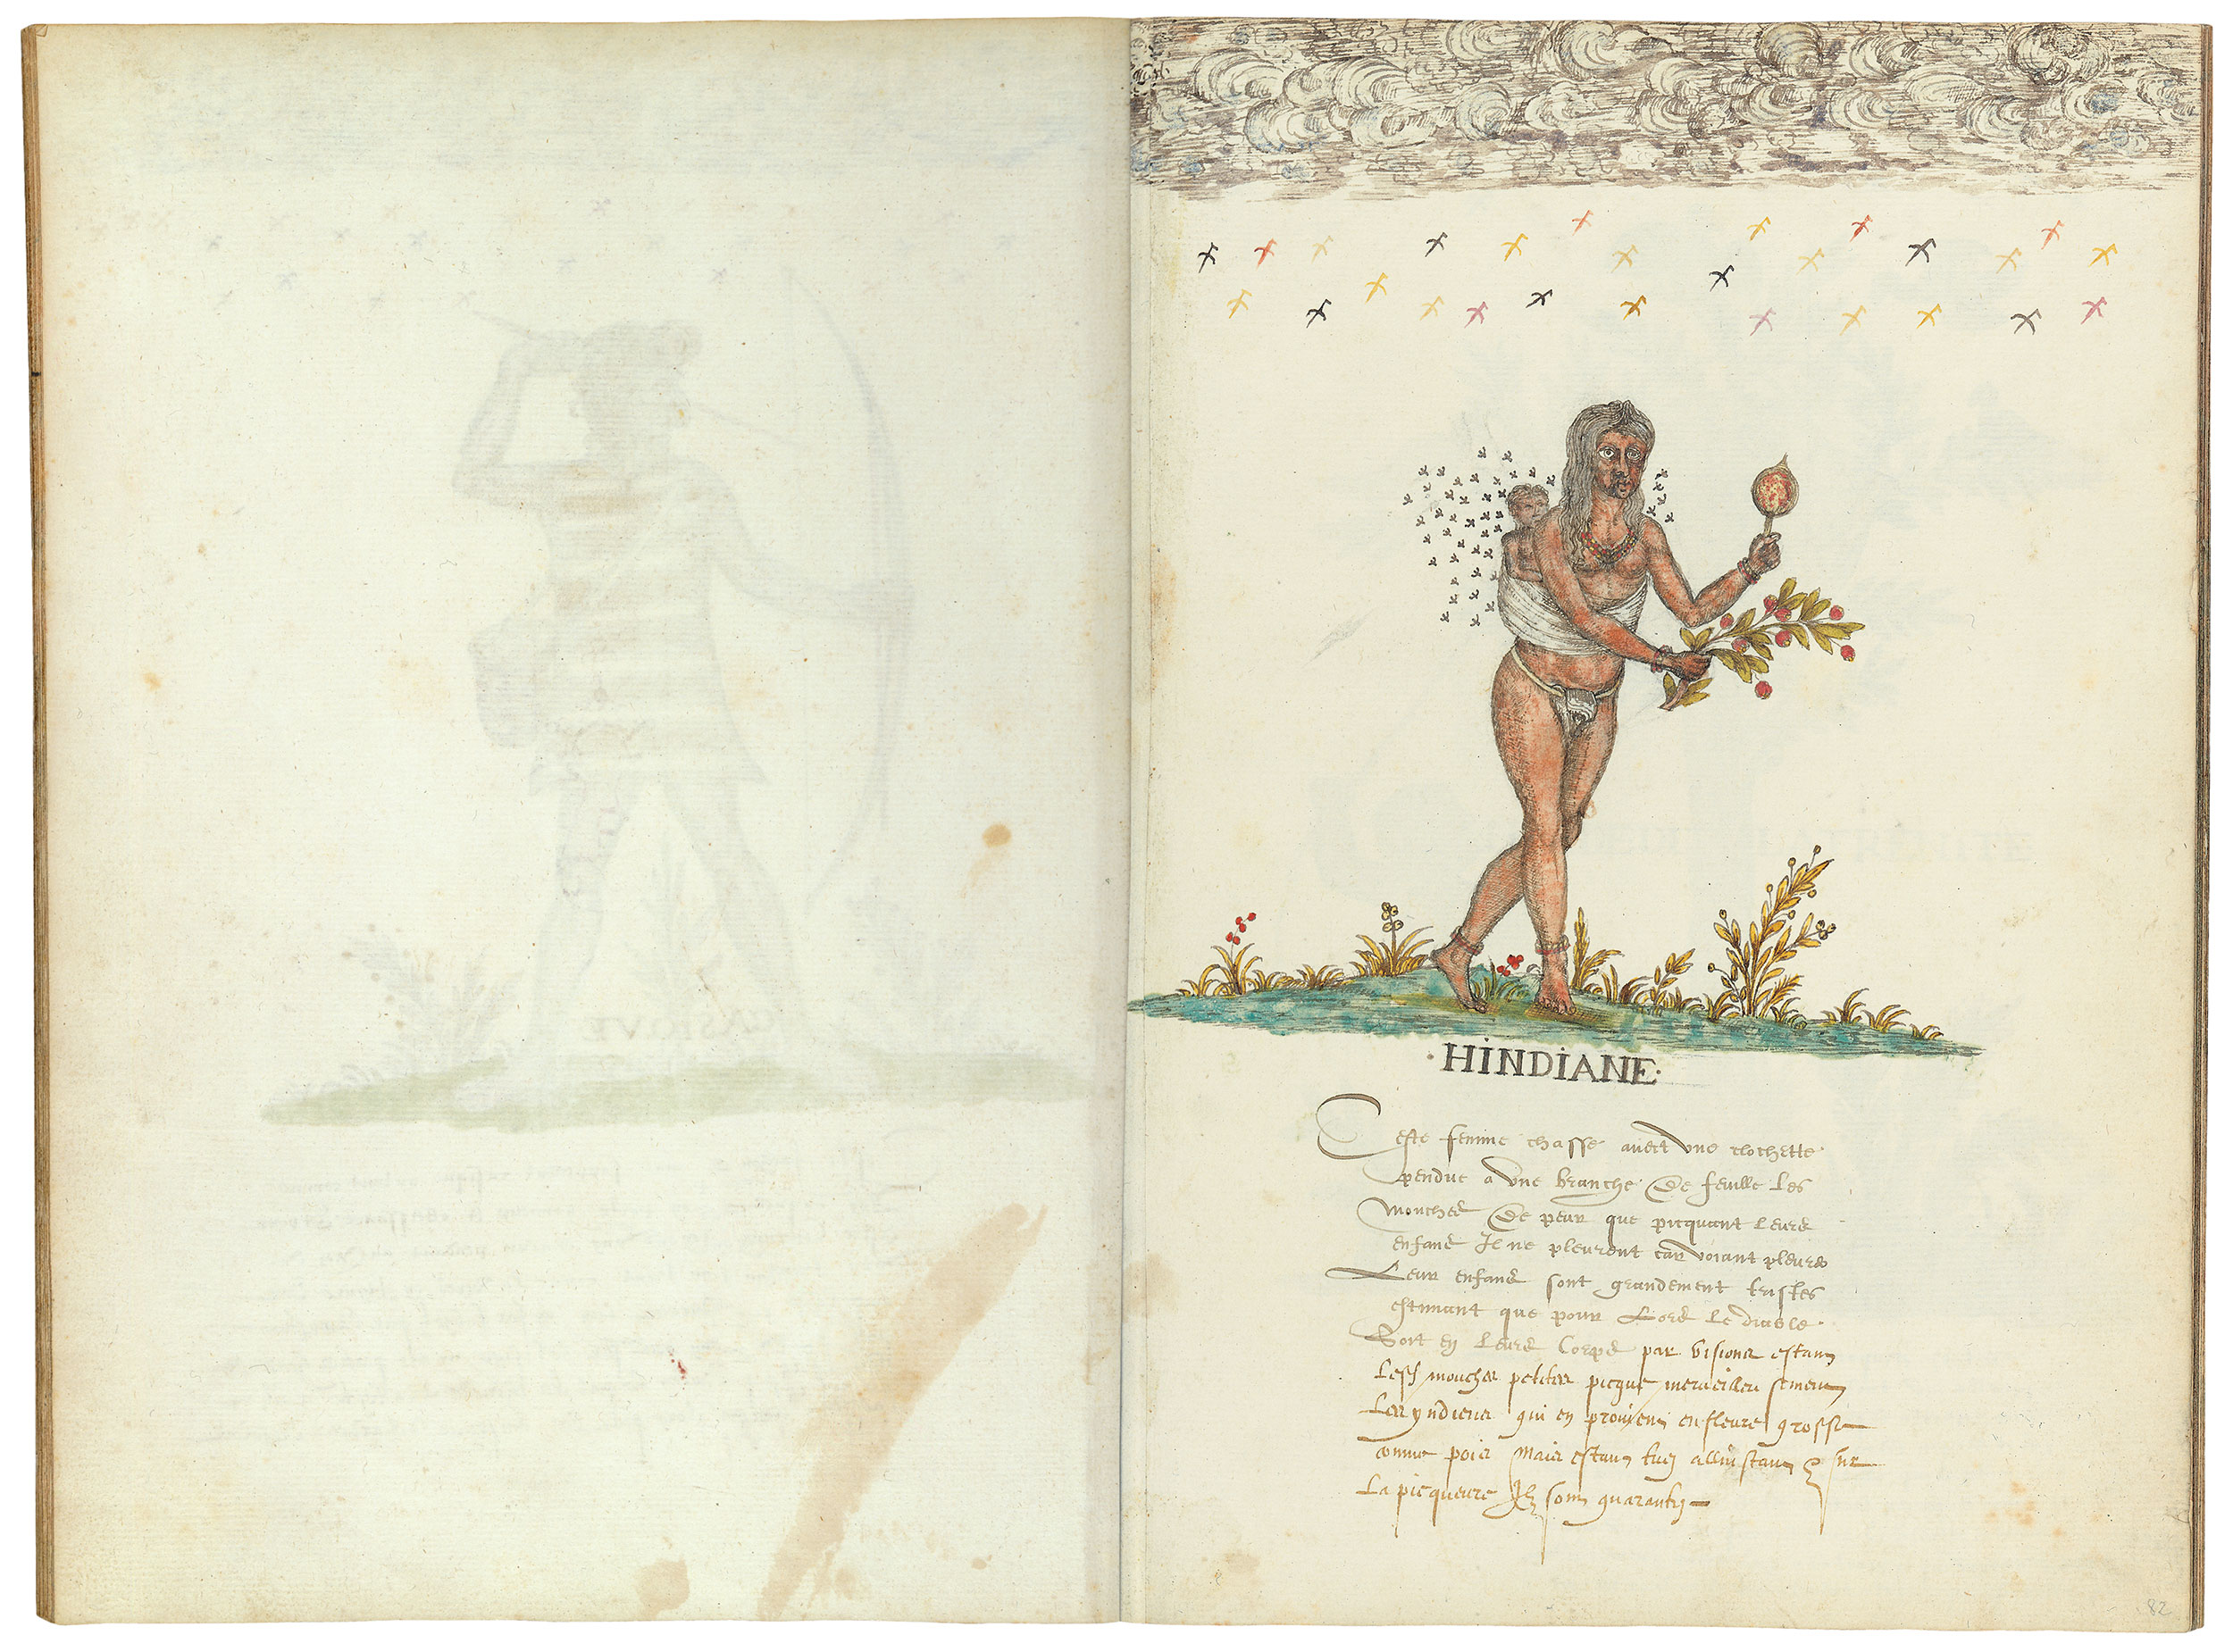 ·HINDIANE·
Ceste femme chasse avect une clochette
pendue a une branche De feuille les
mouches De peur que picquant leurs
enfans Il ne pleurent car voiant pleures
Leur enfans sont grandement tristes
estimant que pour Lors le diable
Soit en leurs Corps par visions estans
Lesd mouches petites picque merveilleusemens
Les yndiens qui en proviens enfleure grosse
comme pois Mais estans tues allinstans sur
La picqueure Ilz sons guarantis
82